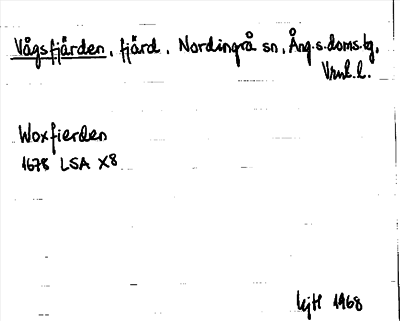 Vågsfjärden, fjärd, Nordingrå sn, Ång.s.doms.tg,
Vrnl. l.
Woxfierden
1678 LSA X8
KjH 1968